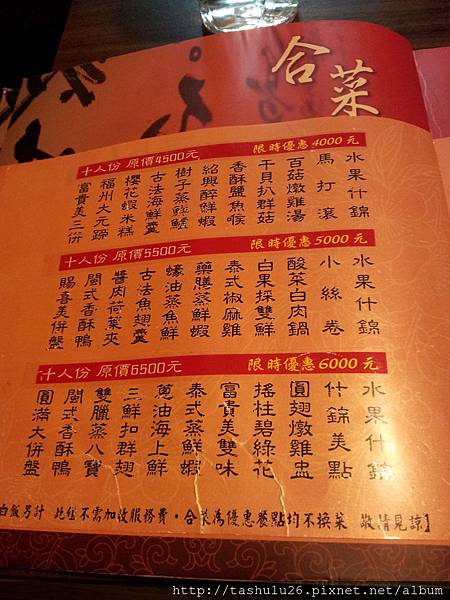 合菜
十人份 原價4500元 限時優惠4000元
富貴美三併
福州大元蹄
櫻花蝦米糕
古法海鮮羹
樹子蒸鮮鱸
紹興醉鮮蝦
香酥鹽魚喉
干貝扒群菇
百菇燉雞湯
馬打滾
水果什錦
十人份 原價5500元 限時優惠5000元
賜喜美併盤
閩式香酥鴨
醬肉荷葉夾
古法魚翅羹
蠔油蒸魚鮮
藥膳蒸鮮蝦
泰式椒麻雞
白果採雙鮮
酸菜白肉鍋
小絲卷
水果什錦
十人份 原價6500元 限時優惠6000元
圓滿大併盤
閩式香酥鴨
雙臘蒸八寶
三鮮扣群翅
蔥油海上鮮
泰式蒸鮮蝦
富貴美雙味
搖柱碧綠花
圓翅燉雞盅
什錦美點
水果什錦
白飯另計 此桌不需加收服務費·合菜為優惠餐點均不換菜 敬請見諒】
http://tashulu26.pixnet.net/album